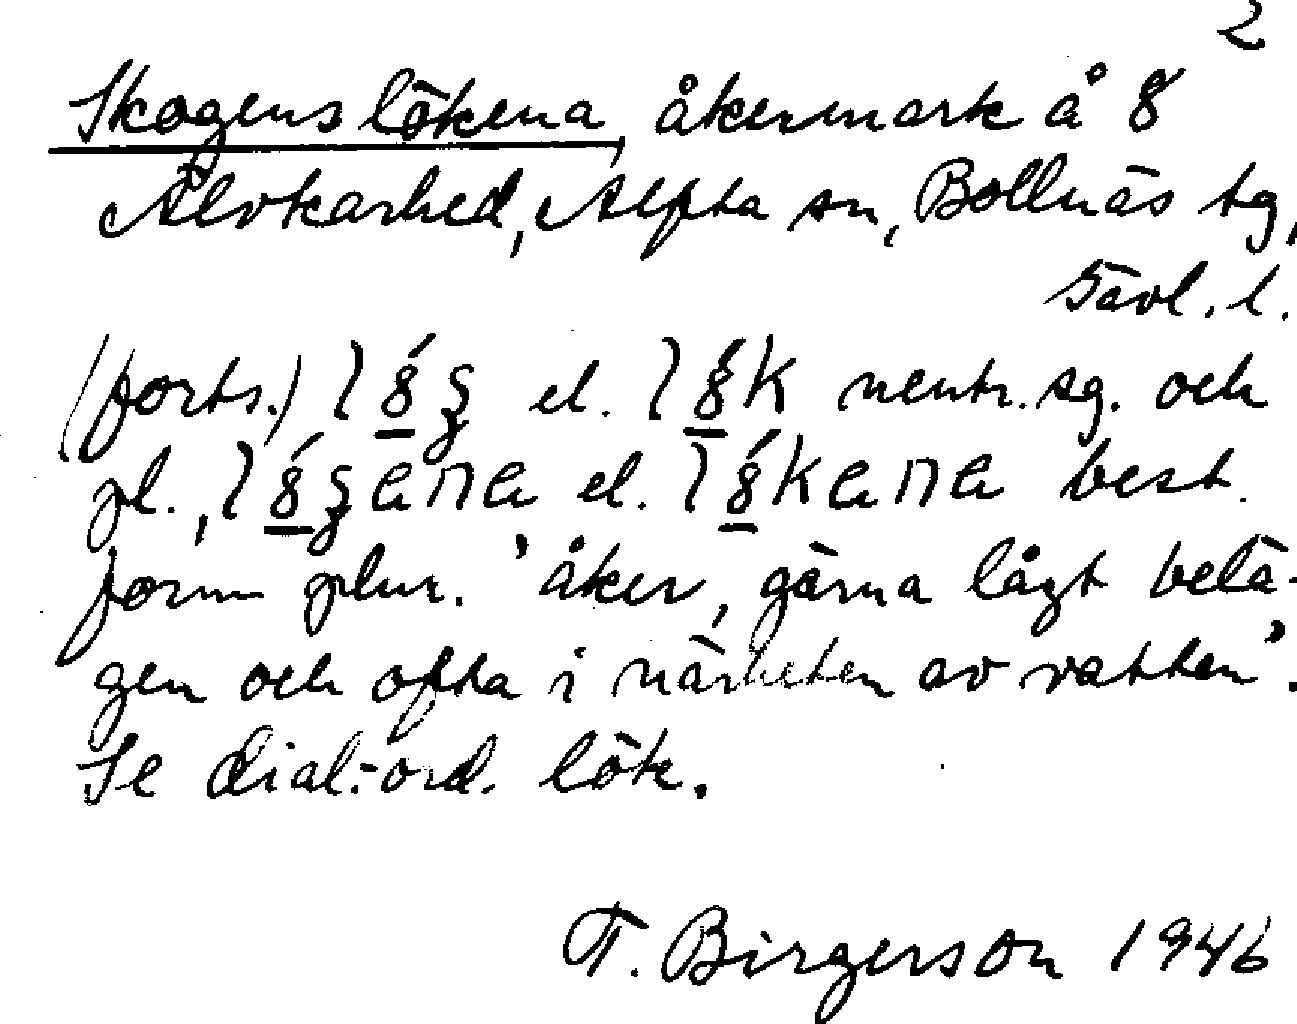 2
Skogenslökena, åkermark å 8
Älvkarhed, Alfta sn, Bollnäs tg,
Gävl. l.
(forts.) l8́ʒ el. l8́k neutr. sg. och
pl., l8́ʒɑnɑ el. l8́kɑnɑ best.
form plur. 'åker, gärna lågt belä-
gen och ofta i närheten av vatten'.
Se dial.-ord. lök.
F. Birgerson 1946